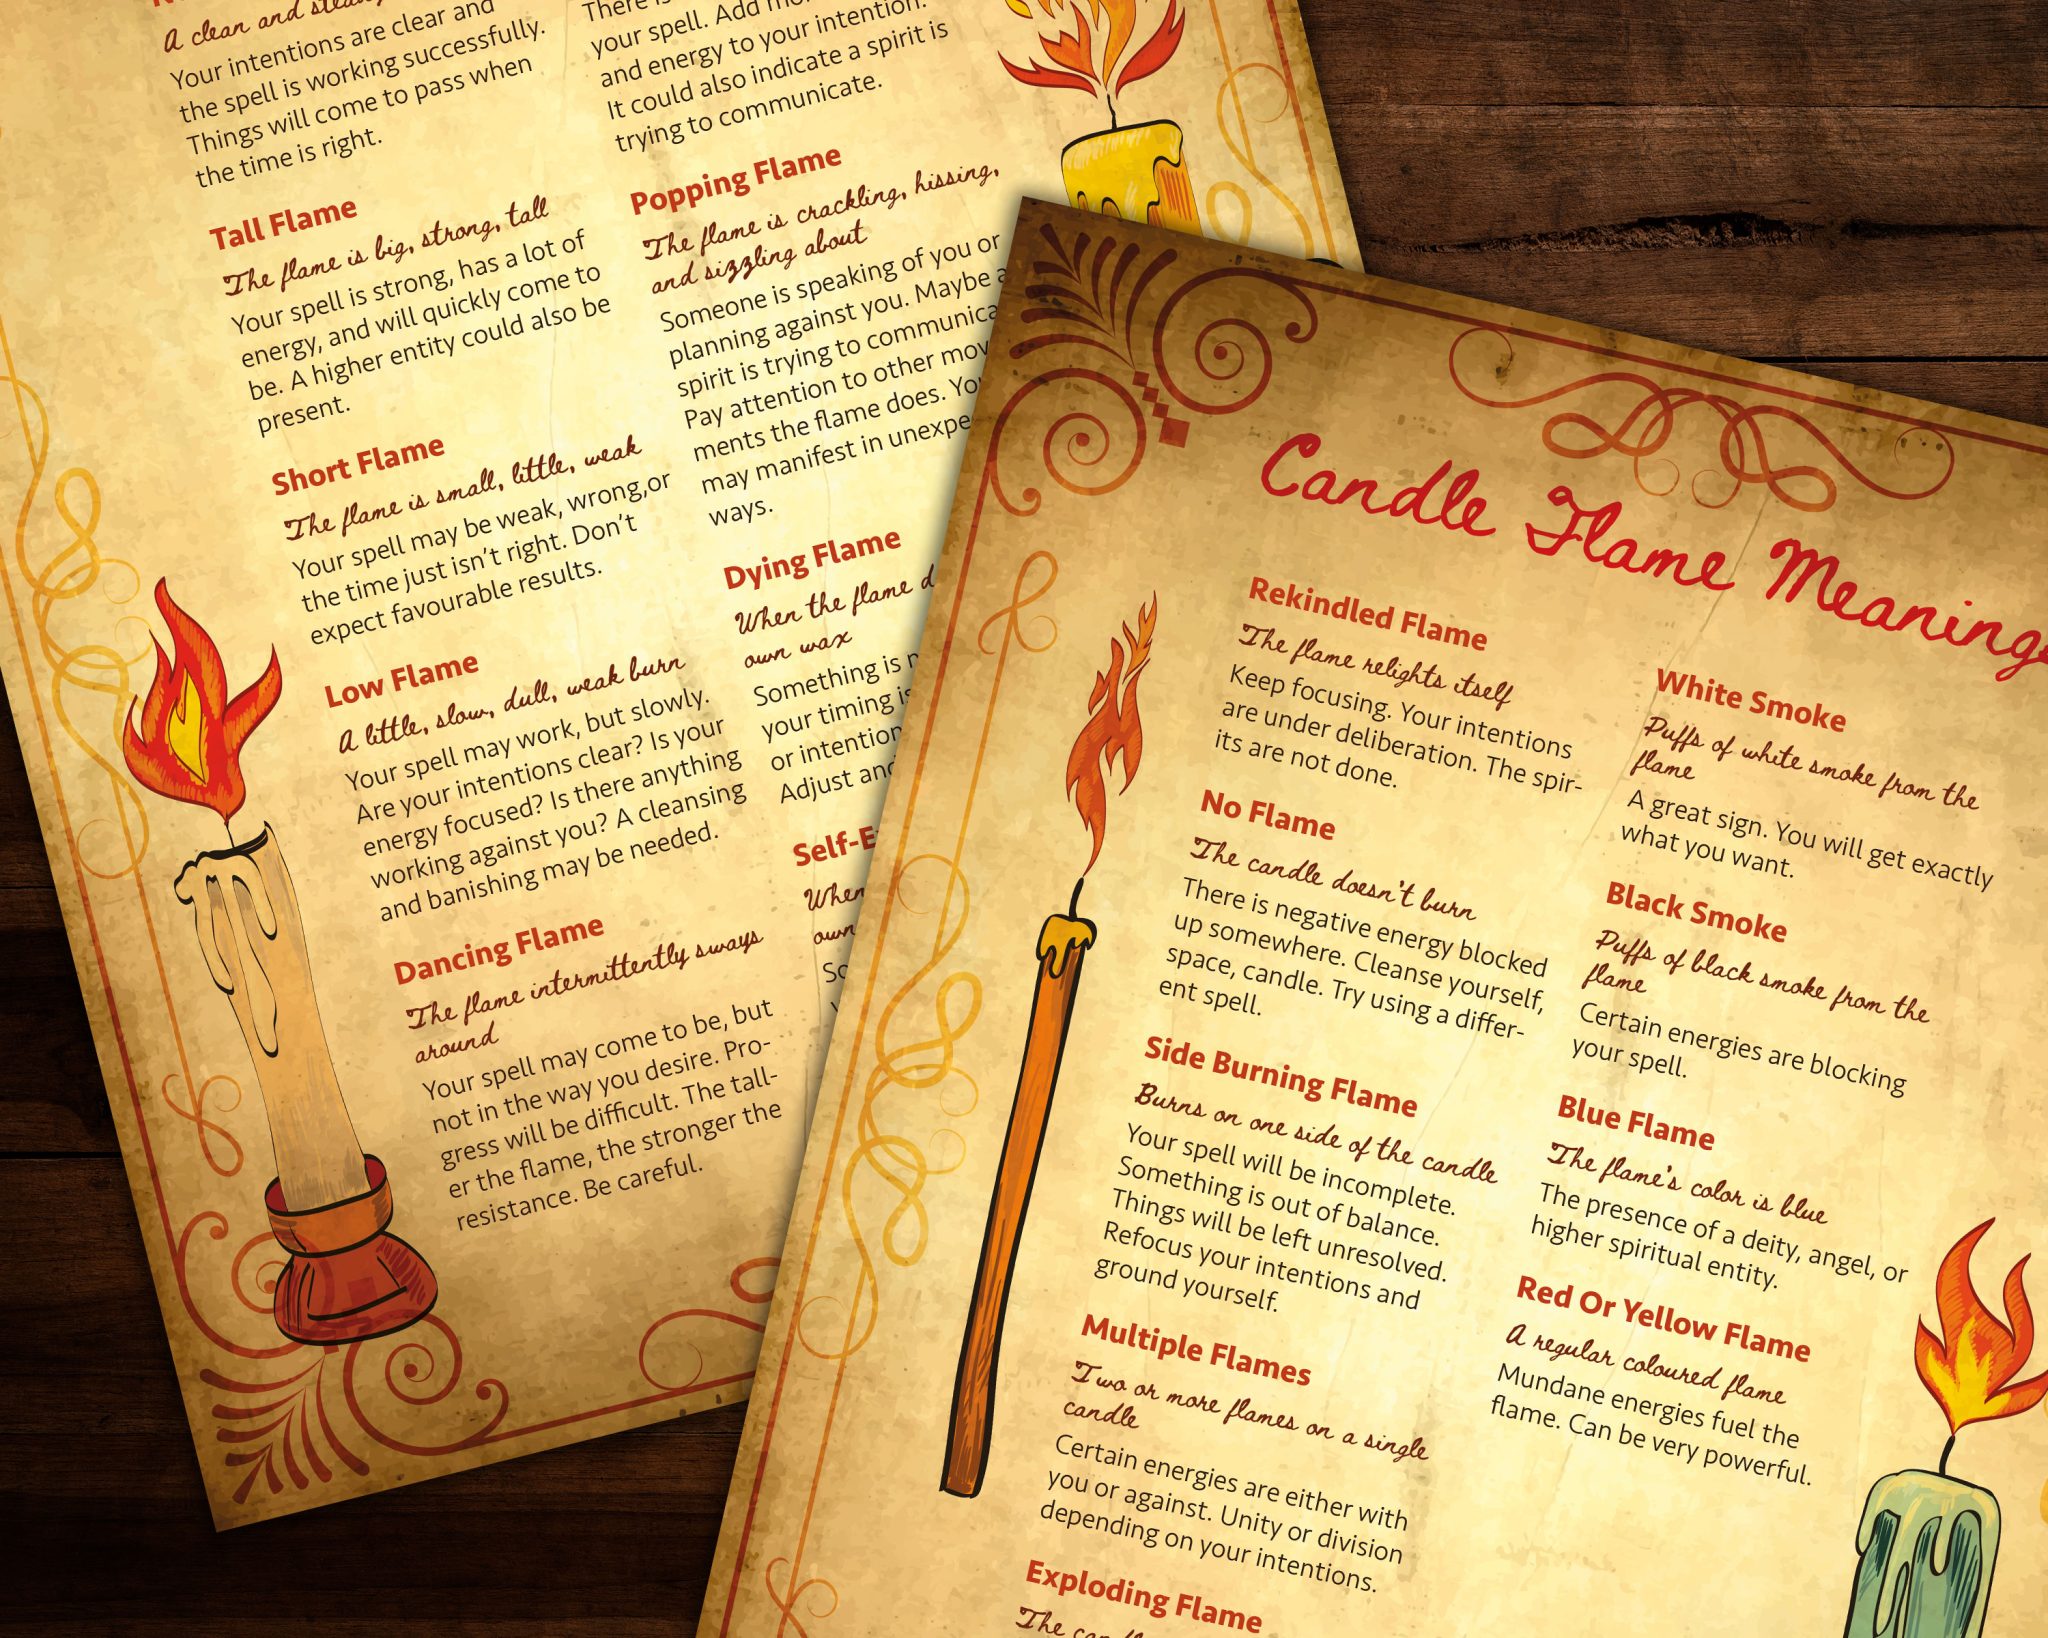 A clean and
Your intentions are clear and
the spell is working successfully.
Things will come to pass when
the time is right.
Tall Flame
The flame is big, strong, tall
Your spell is strong, has a lot of
energy, and will quickly come to
be. A higher entity could also be
present.
Short Flame
The flame is small, little, weak
Your spell may be weak, wrong,or
the time just isn't right. Don't
expect favourable results.
Low Flame
A little, slow, dull, weak burn
Your spell may work, but slowly.
Are your intentions clear? Is your
energy focused? Is there anything
working against you? A cleansing
and banishing may be needed.
Dancing Flame
The flame intermittently sways
around
Your spell may come to be, but
not in the way you desire. Pro-
gress will be difficult. The tall-
er the flame, the stronger the
resistance. Be careful.
There is
your spell. Add
and energy to your intention.
It could also indicate a spirit is
trying to communicate.
Popping Flame
The flame is crackling, hissing,
and sizzling about
Someone is speaking of you or
planning against you. Maybe a
spirit is trying to communica
Pay attention to other mov
ments the flame does. You
may manifest in unexpe
ways.
Dying Flame
When the flame d
own wax
Something is
your timing is
or intention
Adjust and
Self-E
When
own
So
Candle Flame Meanings
Rekindled Flame
The flame relights itself
Keep focusing. Your intentions
are under deliberation. The spir-
its are not done.
No Flame
The candle doesn't burn
There is negative energy blocked
up somewhere. Cleanse yourself,
space, candle. Try using a differ-
ent spell.
Side Burning Flame
Burns on one side of the candle
Your spell will be incomplete.
Something is out of balance.
Things will be left unresolved.
Refocus your intentions and
ground yourself.
Multiple Flames
Two or more flames on a single
candle
Certain energies are either with
you or against. Unity or division
depending on your intentions.
Exploding Flame
The
White Smoke
Puffs of white smoke from the
flame
A great sign. You will get exactly
what you want.
Black Smoke
Puffs of black smoke from the
flame
Certain energies are blocking
your spell.
Blue Flame
The flame's color is blue
The presence of a deity, angel, or
higher spiritual entity.
Red Or Yellow Flame
A regular coloured flame
Mundane energies fuel the
flame. Can be very powerful.